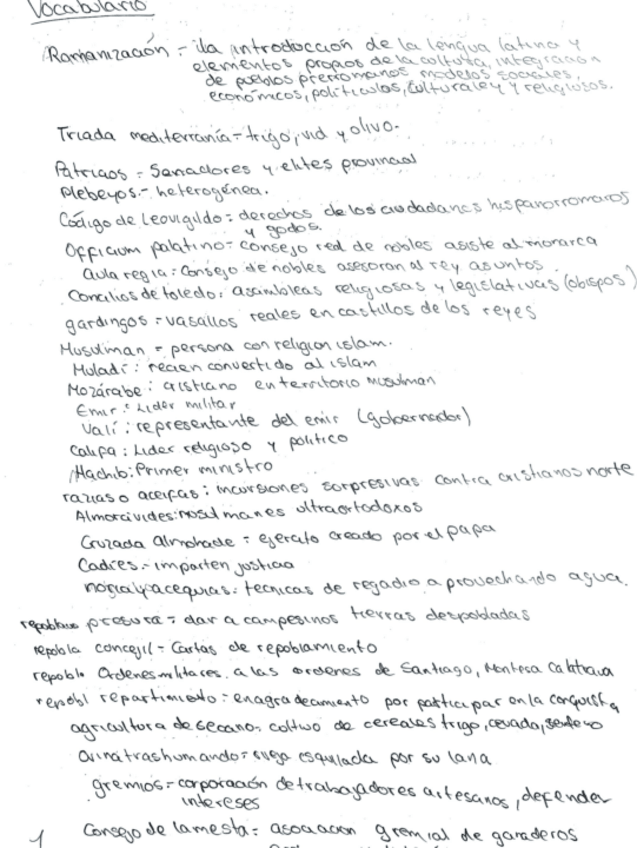 Vocabulario
Romanización = la introducción de la lengua latina y
elementos propios de la cultura, integración
de pueblos prerromanos modelos sociales,
económicos, políticulos, culturales y religiosos.
Triada mediterranía = trigo, vid y olivo.
Patricios = Senadores y elites provincial
Plebeyos.- heterogénea.
Código de Leovigildo = derechos de los ciudadanos hispanorromanos
y godos.
Officium palatino = consejo real de nobles asiste al monarca
Aula regia = Consejo de nobles asesoran al rey asuntos
Concilios de toledo: asambleas religiosas y legislativas (obispos)
gardingos = vasallos reales en castillos de los reyes
Musulman = persona con religion islam.
Muladí: recien convertido al islam
Mozárabe: cristiano en territorio musulman
Emir: Lider militar
Valí: representante del emir (gobernador)
Califa: Lider religioso y politico
Hachib: Primer ministro
razias o aceifas: incursiones sorpresivas contra cristianos norte
Almoravides: musulmanes ultraortodoxos
Cruzada Almohade = ejercito creado por el papa
Cadíes.- imparten justicia
noria y acequias: tecnicas de regadio aprovechando agua.
presura = dar a campesinos tierras despobladas
repobla concejil = Cartas de repoblamiento
repobla Ordenes militares. a las ordenes de Santiago, Montesa Calatrava
repobl repartimiento = en agradecimiento por participar en la conquista
agricultura de secano. coltivo de cereales trigo, cevada, senteno
Ovina trashumando = oveja esquilada por su lana
gremios = corporación de trabajadores artesanos, defender
intereses
1 Consejo de la mesta = asociacion gremial de ganaderos